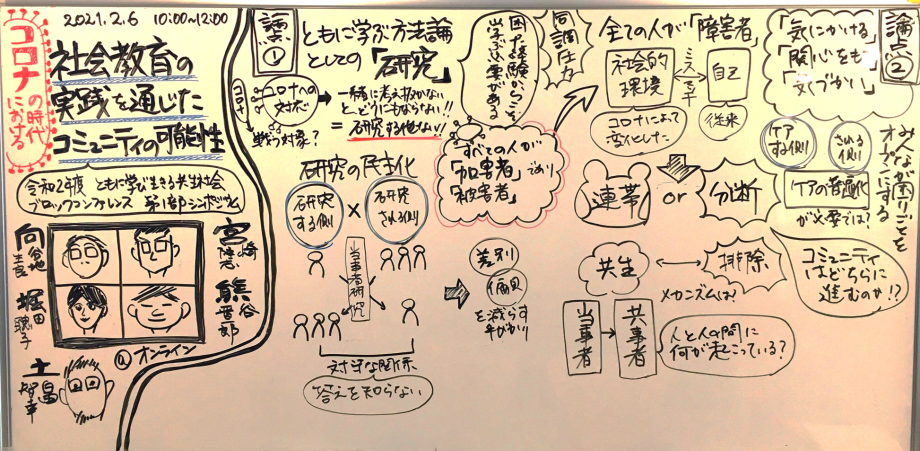 2021.2.6 10:00~12:00
コロナ
の時代
における
社会教育の
実践を通じた
コミュニティの可能性
令和2年度 ともに学び生きる共生社会
ブロックコンファレンス 第1部シンポジウム
向谷地
生良
宮崎
隆志
堀田
聰子
熊谷
晋一郎
@オンライン
土畠
智幸
論点①
ともに学ぶ方法論
としての「研究」
コロナ
コロナへの
対応
戦う対象?
一緒に考え抜かない
と、どうにもならない!!
=研究する他ない!!
研究の民主化
研究
する側
×
研究
される側
当事者研究
対等な関係
答えを知らない
差別
偏見
を減らす
手がかり
困った経験からこそ
学ぶ必要がある
すべての人が
「加害者」であり
「被害者」
同調圧力
全ての人が「障害者」
社会的
環境
ミスマッチ
自己
コロナによって
変化した
従来
連帯
or
分断
共生
排除
メカニズムは?
当事者
共事者
人と人の間に
何が起こっている?
論点②
「気にかける」
「関心をもつ」
「気づかい」
ケア
する側
される
側
みんなが困りごとを
オープンにする
「ケアの普遍化」
が必要では!
コミュニティ
はどちらに
進むのか!?